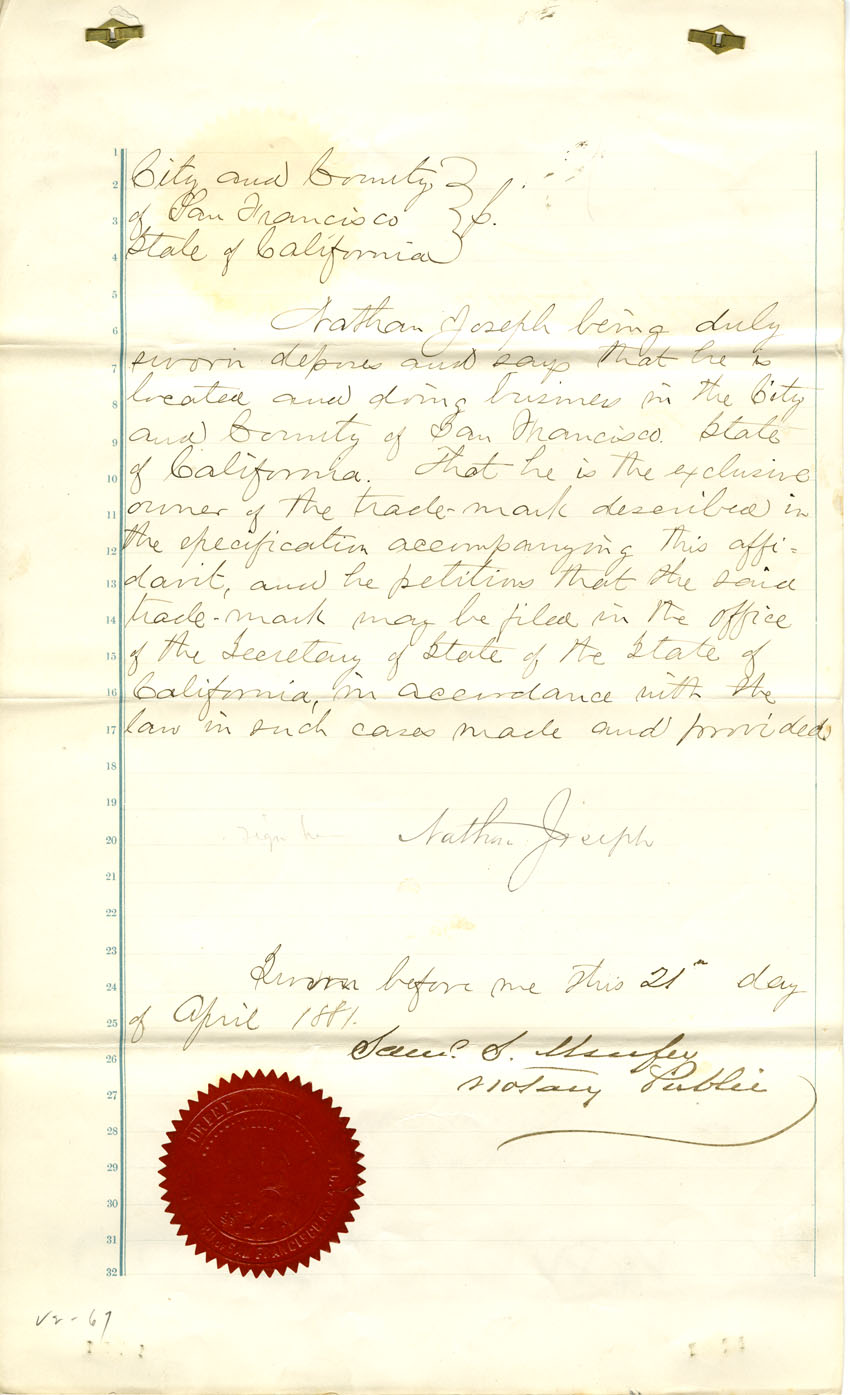 City and County
of San Francisco } s.
State of California
Nathan Joseph being duly
sworn deposes and says that he is
located and doing business in the City
and County of San Francisco. State
of California. That he is the exclusive
owner of the trade-mark described in
the specification accompanying this affi=
davit, and he petitions that the said
trade-mark may be filed in the office
of the Secretary of State of the State of
California, in accordance with the
law in such cases made and provided.
sign
Nathan Joseph
Sworn before me this 21st day
of April 1881.
Saml. S.
Notary Public
1
2
3
4
5
6
7
8
9
10
11
12
13
14
15
16
17
18
19
20
21
22
23
24
25
26
27
28
29
30
31
32
SAN FRANCISCO